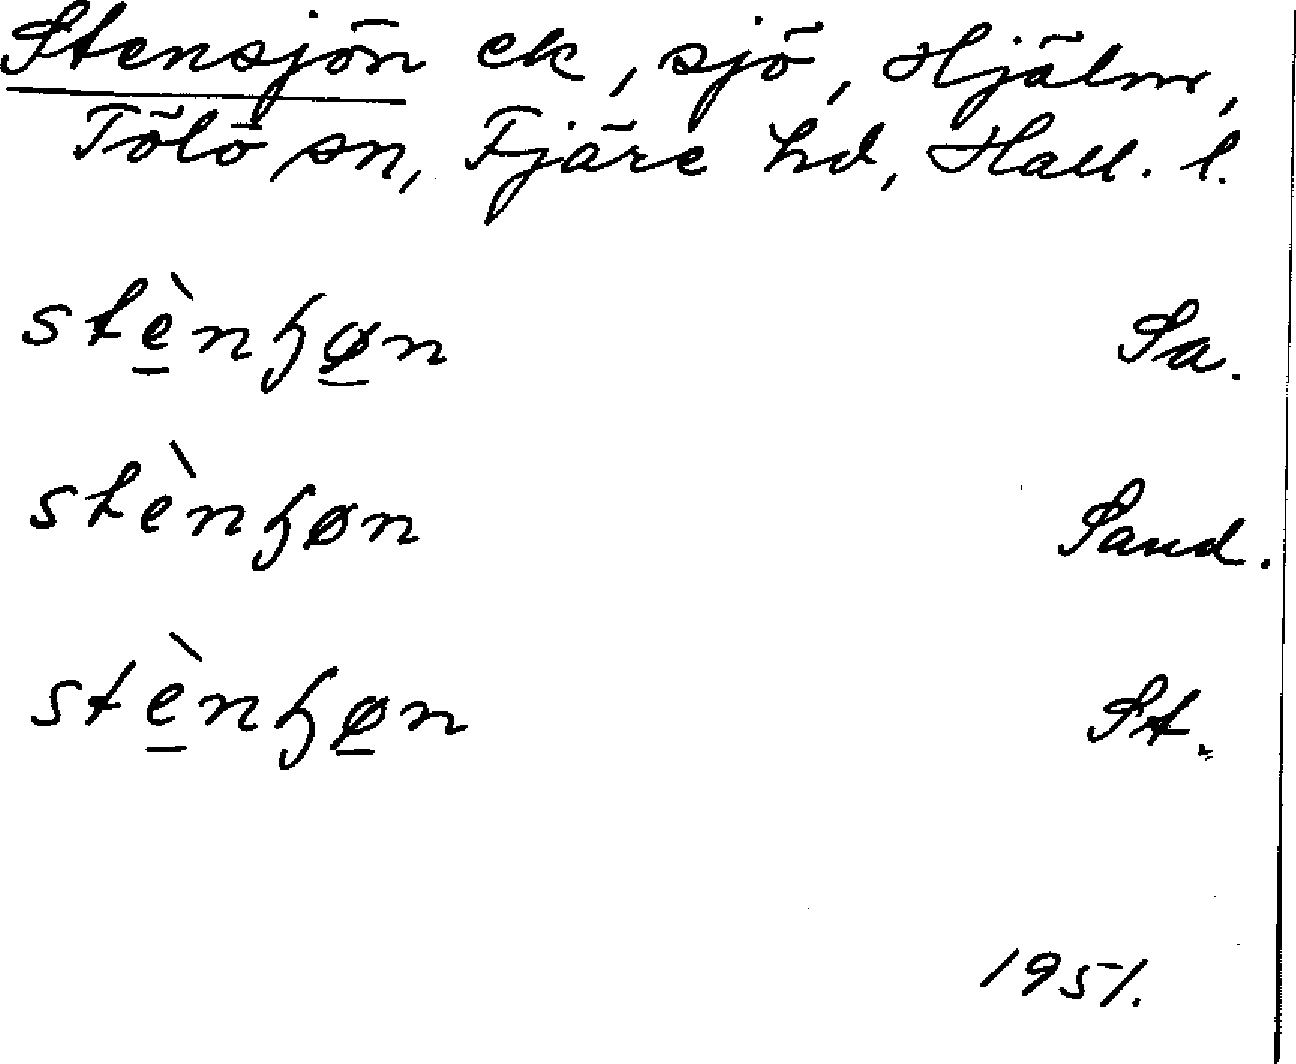 Stensjön ek, sjö, Hjälm,
Tölö sn, Fjäre hd, Hall. l.
stè̠nɧø̠n Sa.
stènɧøn Sand.
stè̠nɧø̠n St.
1951.